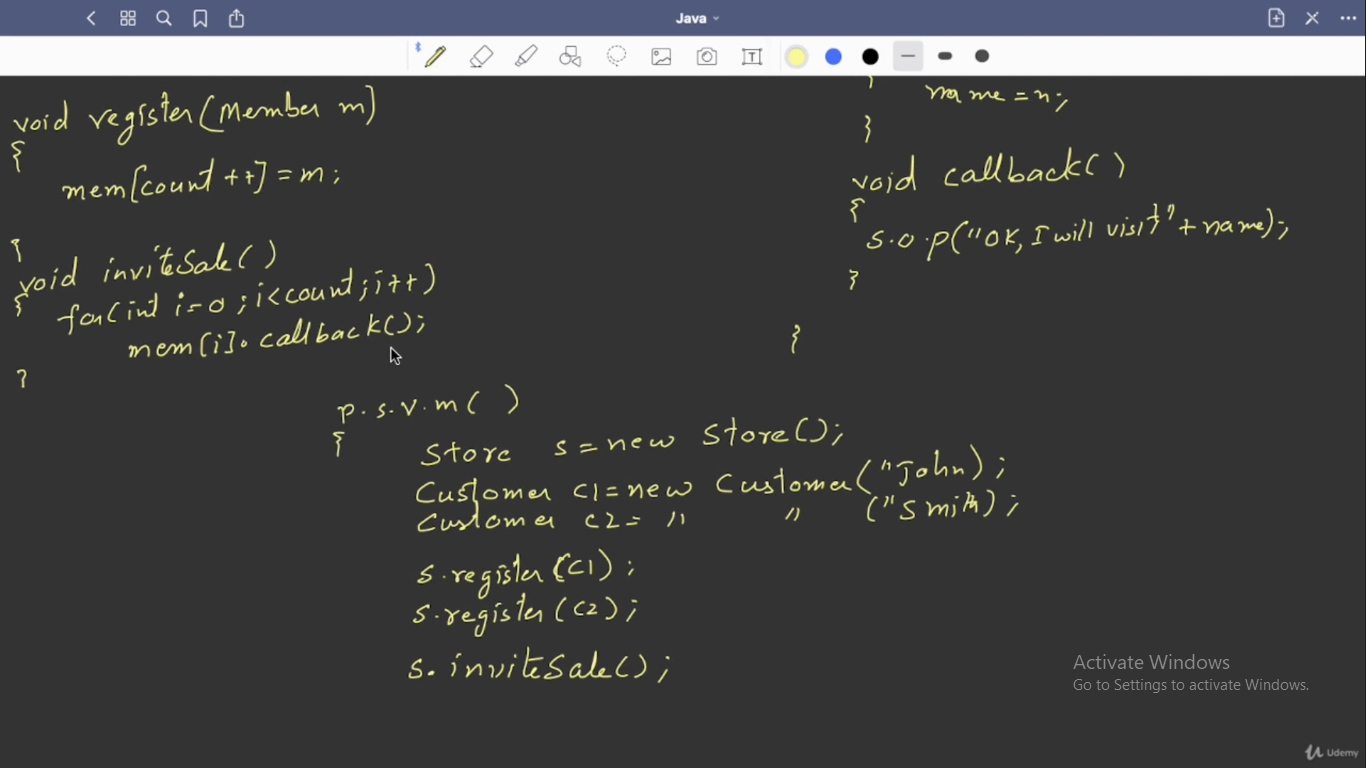 Java
void register(Member m)
{
mem[count ++] = m;
}
void inviteSale( )
{
for(int i=0 ; i<count; i++)
mem[i]. callback();
}
}
name = n;
}
void callback( )
{
s.o.p("OK, I will visit" + name);
}
}
p.s.v.m( )
{
Store s = new Store();
Customer c1 = new Customer("John);
Customer c2 = " " ("Smith);
s.register(c1);
s.register(c2);
s. inviteSale();
Activate Windows
Go to Settings to activate Windows.
Udemy